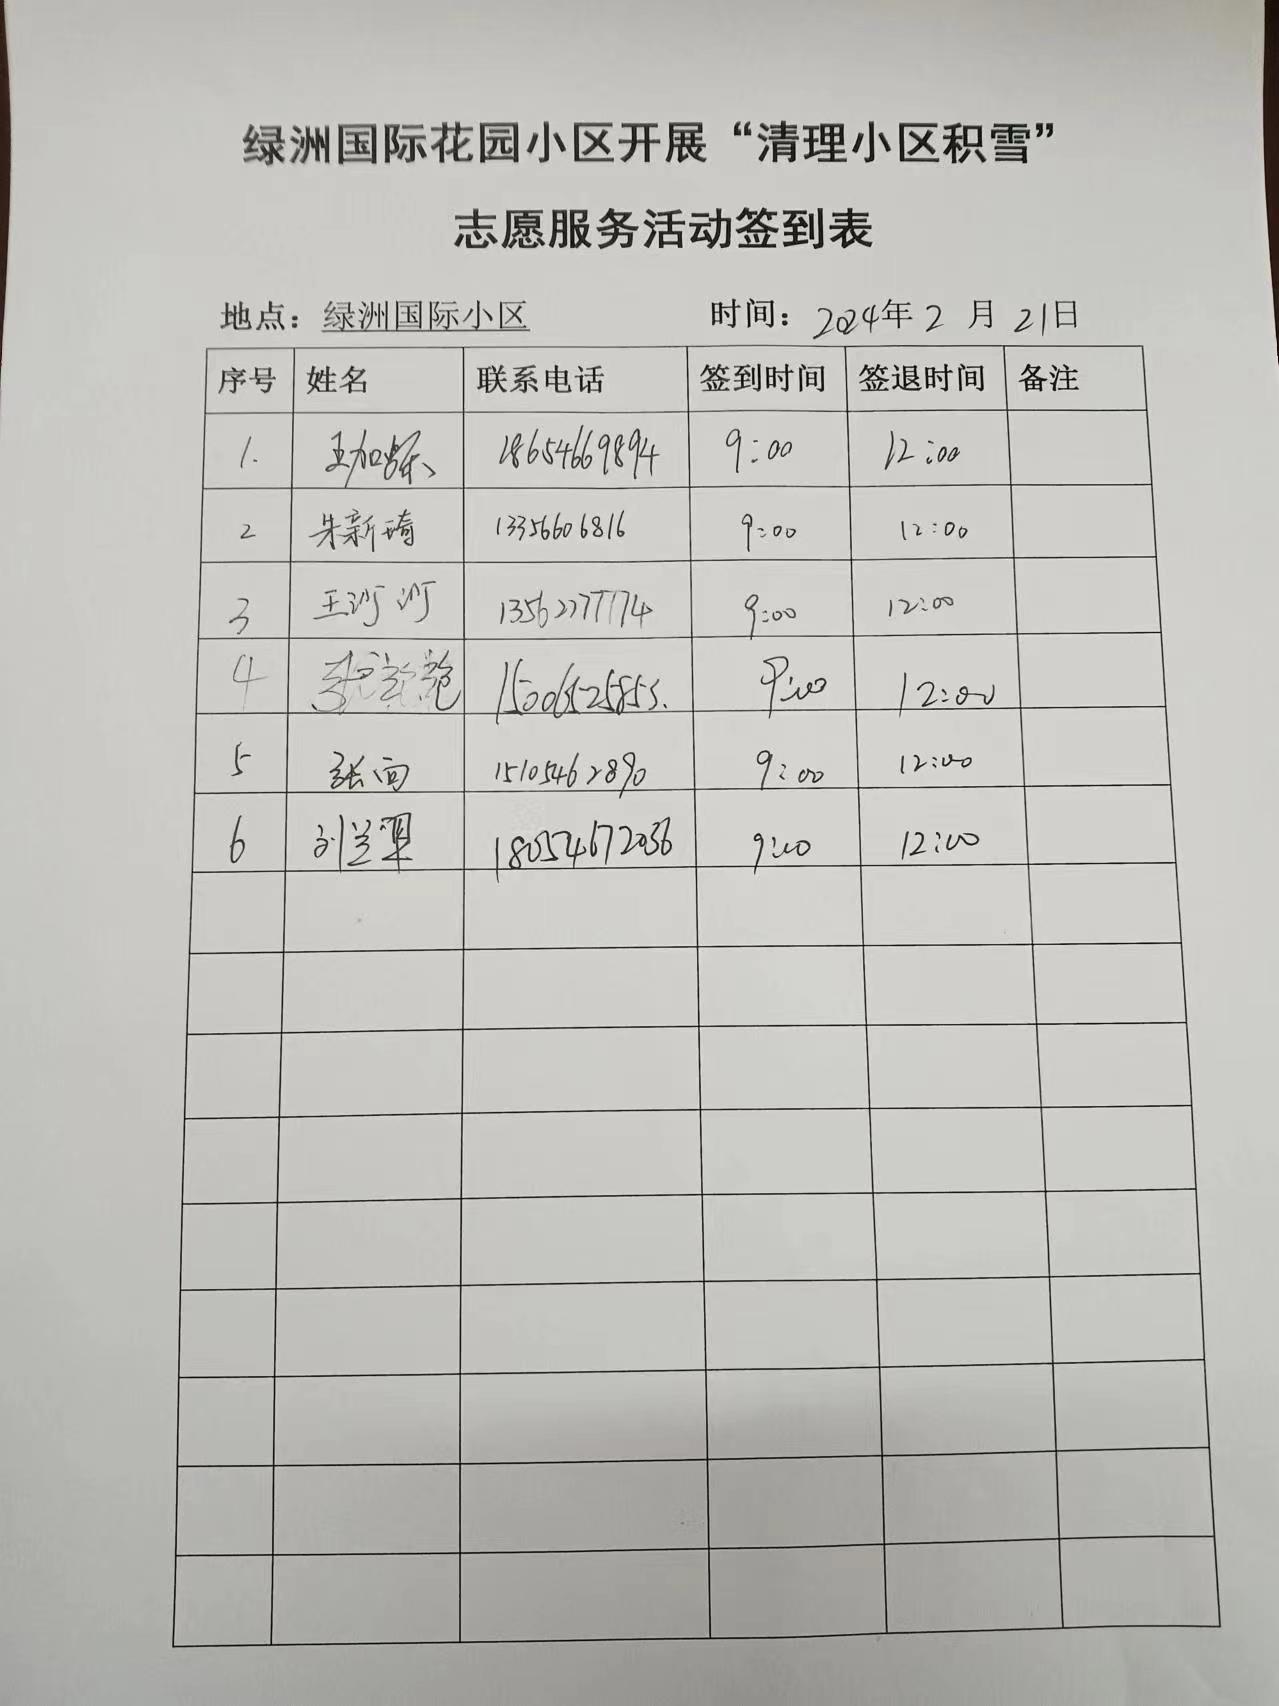 绿洲国际花园小区开展“清理小区积雪”
志愿服务活动签到表
地点：绿洲国际小区 时间：2024年2月21日
序号 姓名 联系电话 签到时间 签退时间 备注
1. 王加 18654669894 9:00 12:00
2 朱新琦 13356606816 9:00 12:00
3 王 13562277774 9:00 12:00
4 15006525853. 9:00 12:00
5 张 15105462890 9:00 12:00
6 刘兰翠 18054672036 9:00 12:00